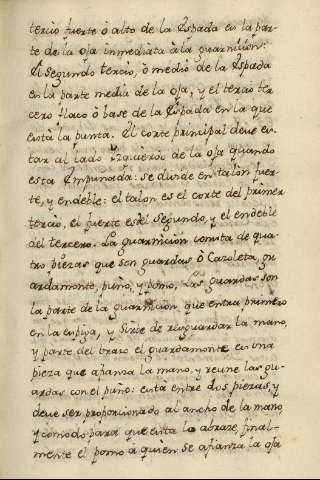 tercio fuerte ò alto de la Espada es la par-
te de la oja inmediata à la guarnicion.
El segundo tercio, ò medio de la Espada
es la parte media de la oja, y el tercio ter
cero flaco ò base de la Espada es la que
està la punta. El corte principal deve es-
tar al lado yzquierdo de la oja quando
esta Empuñada: se divide en talon fuer-
te, y endeble: el talon es el corte del primer
tercio, el fuerte es del segundo, y el endeble
del tercero. La guarnicion consta de qua-
tro piezas que son guardas ò Cazoleta, gu
ardamonte, puño, y pomo, Las guardas son
la parte de la guarnicion que entra primero
en la espiga, y sirve de resguardar la mano,
y parte del brazo el guardamonte es una
pieza que afianza la mano, y reune las gu-
ardas con el puño: està entre dos piezas, y
deve ser proporcionado al ancho de la mano
y comodo para que esta lo abraze, final-
mente el pomo a quien se afianza la oja